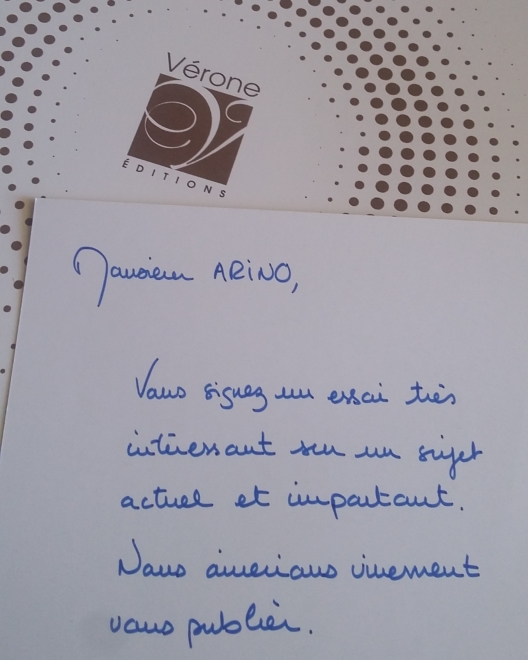 Vérone
ÉDITIONS
Monsieur ARINO,
Vous signez un essai très
intéressant sur un sujet
actuel et important.
Nous aimerions vivement
vous publier.